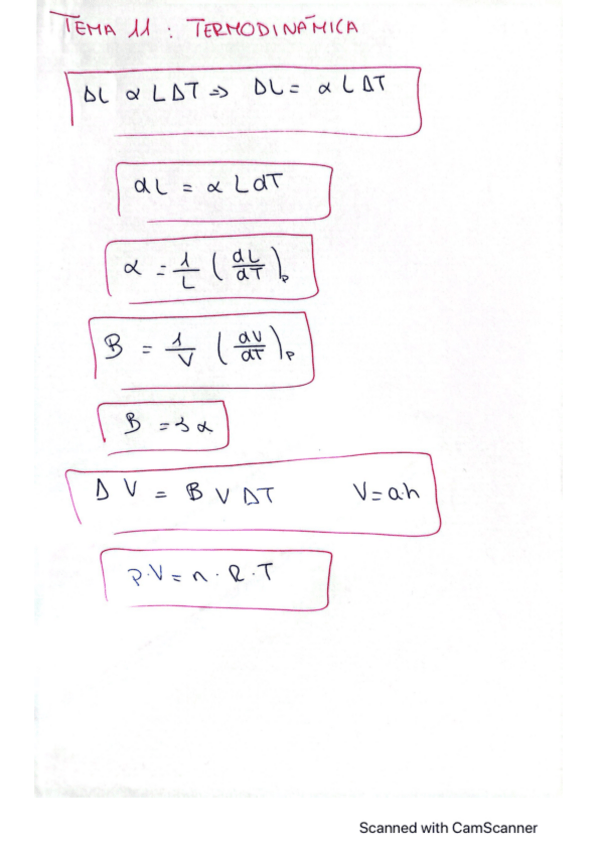 TEMA 11 : TERMODINÁMICA
ΔL α L ΔT ⇒ ΔL = α L ΔT
dL = α L dT
α = 1/L (dL/dT)p
B = 1/V (dV/dT)p
B = 3α
Δ V = B V ΔT V = a·h
P·V = n · R · T
Scanned with CamScanner